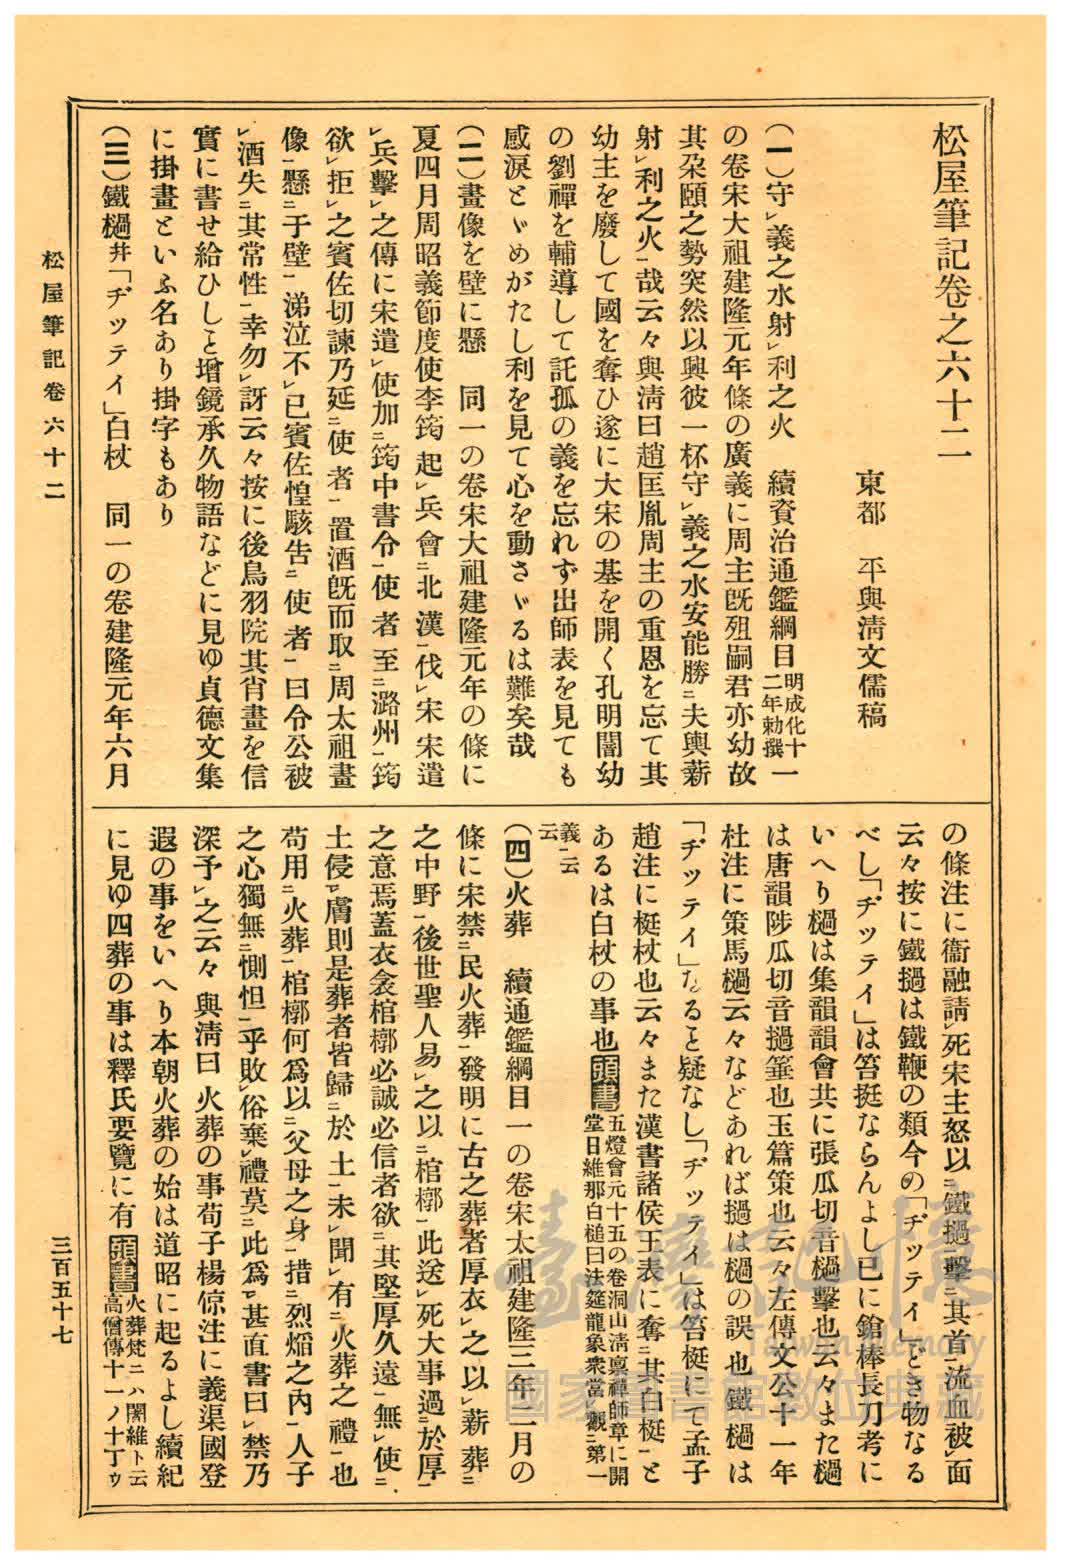 松屋筆記卷之六十二
東都　平與淸文儒稿
(一)守㆑義之水射㆑利之火　續資治通鑑綱目明成化十二年勅撰一
の卷宋大祖建隆元年條の廣義に周主旣殂嗣君亦幼故
其朶頤之勢突然以興彼一杯守㆑義之水安能勝㆓夫輿薪
射㆑利之火㆒哉云々與淸曰趙匡胤周主の重恩を忘て其
幼主を廢して國を奪ひ遂に大宋の基を開く孔明闇幼
の劉禪を輔導して託孤の義を忘れず出師表を見ても
感淚とゞめがたし利を見て心を動さゞるは難矣哉
(二)畫像を壁に懸　同一の卷宋大祖建隆元年の條に
夏四月周昭義節度使李筠起㆑兵會㆓北漢㆒伐㆑宋宋遣
㆑兵擊㆑之傳に宋遣㆑使加㆓筠中書令㆒使者至㆓潞州㆒筠
欲㆑拒㆑之賓佐切諫乃延㆓使者㆒置酒旣而取㆓周太祖畫
像㆒懸㆓于壁㆒涕泣不㆑已賓佐惶駭告㆓使者㆒曰令公被
㆑酒失㆓其常性㆒幸勿㆑訝云々按に後鳥羽院其肖畫を信
實に書せ給ひしと增鏡承久物語などに見ゆ貞德文集
に掛畫といふ名あり掛字もあり
(三)鐵檛幷「ヂッテイ」白杖　同一の卷建隆元年六月
の條注に衞融請㆑死宋主怒以㆓鐵撾㆒擊㆓其首㆒流血被㆑面
云々按に鐵撾は鐵鞭の類今の「ヂッテイ」ごとき物なる
べし「ヂッテイ」は笞挺ならんよし已に鎗棒長刀考に
いへり檛は集韻韻會共に張瓜切音檛擊也云々また檛
は唐韻陟瓜切音撾箠也玉篇策也云々左傳文公十一年
杜注に策馬檛云々などあれば撾は檛の誤也鐵檛は
「ヂッテイ」なると疑なし「ヂッテイ」は笞梃にて孟子
趙注に梃杖也云々また漢書諸侯王表に奪㆓其白梃㆒と
あるは白杖の事也頭書五燈會元十五の卷洞山淸禀禪師章に開堂日維那白槌曰法筵龍象衆當㆑觀㆓第一
義㆒云云
(四)火葬　續通鑑綱目一の卷宋太祖建隆三年二月の
條に宋禁㆓民火葬㆒發明に古之葬者厚衣㆑之以㆑薪葬㆓
之中野㆒後世聖人易㆑之以㆓棺槨㆒此送㆑死大事過㆓於厚㆒
之意焉蓋衣衾棺槨必誠必信者欲㆓其堅厚久遠㆒無㆑使㆓
土侵㆒㆑膚則是葬者皆歸㆓於土㆒未㆑聞㆑有㆓火葬之禮㆒也
苟用㆓火葬㆒棺槨何爲以㆓父母之身㆒措㆓烈焰之內㆒人子
之心獨無㆓惻怛㆒乎敗㆑俗棄㆑禮莫㆓此爲㆒㆑甚直書曰㆑禁乃
深予㆑之云々與淸曰火葬の事荀子楊倞注に義渠國登
遐の事をいへり本朝火葬の始は道昭に起るよし續紀
に見ゆ四葬の事は釋氏要覽に有頭書火葬梵ニハ闍維ト云高僧傳十一ノ十丁ウ
松屋筆記卷六十二
三百五十七
臺灣記憶
Taiwan Memory
國家圖書館數位典藏